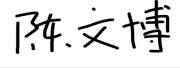 陈文博